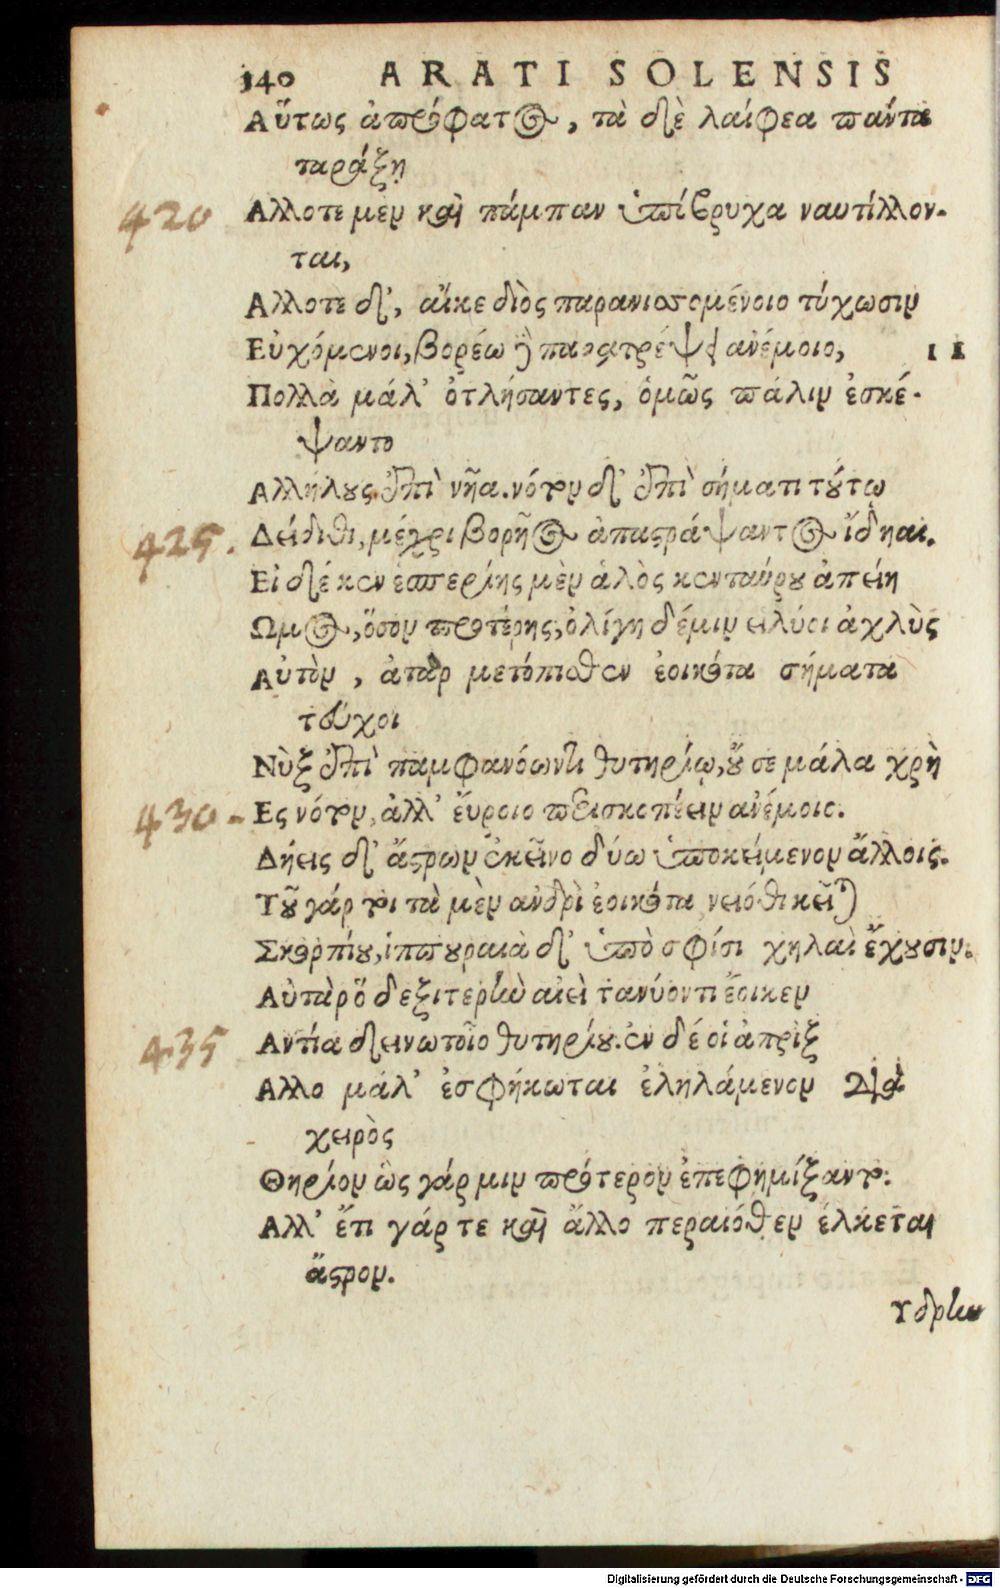 140 ARATI SOLENSIS
Αὔτως ἀπρόφατος, τὰ δὲ λαίφεα πάντα
ταράξῃ
420 Αλλοτε μὲν καὶ πάμπαν ὑπόβρυχα ναυτίλλον-
ται,
Αλλοτε δ', αἴκε διὸς παρανισσομένοιο τύχωσιν
Εὐχόμενοι, βορέω δὲ παραστρέψῃ ἀνέμοιο, 11
Πολλὰ μάλ' ὀτλήσαντες, ὁμῶς πάλιν ἐσκέ-
ψαντο
Αλλήλους ἐπὶ νῆα. νότον δ' ἐπὶ σήματι τούτῳ
425. Δείδιθι, μέχρι βορῆος ἀπαστράψαντος ἴδηαι.
Εἰ δέ κεν ἑσπερίης μὲν ἁλὸς κενταύρου ἀπείη
Ωμος, ὅσον προτέρης, ὀλίγη δέ μιν εἰλύοι ἀχλὺς
Αὐτὸν, ἀτὰρ μετόπισθεν ἐοικότα σήματα
τεύχοι
Νὺξ ἐπὶ παμφανόωντι θυτηρίῳ, οὔ σε μάλα χρὴ
430 - Ες νότον, ἀλλ' εὔροιο περισκοπέειν ἀνέμοιο.
Δήεις δ' ἄστρων ἐκεῖνο δύω ὑποκείμενον ἄλλοις.
Τοῦ γάρ τοι τὰ μὲν ἀνδρὶ ἐοικότα νειόθι κεῖται
Σκορπίου, ἱππουραιὰ δ' ὑπὸ σφίσι χηλαὶ ἔχουσιν.
Αὐτὰρ ὅ δεξιτερὴν αἰεὶ τανύοντι ἔοικεν
435 Αντία δεινωτοῖο θυτηρίου. ἐν δέ οἱ ἀπρὶξ
Αλλο μάλ' ἐσφήκωται ἐληλάμενον διὰ
χειρὸς
Θηρίον ὡς γάρ μιν πρότερον ἐπεφημίξαντο.
Αλλ' ἔτι γάρ τε καὶ ἄλλο περαιόθεν ἕλκεται
ἄστρον.
Υδρην
Digitalisierung gefördert durch die Deutsche Forschungsgemeinschaft - DFG